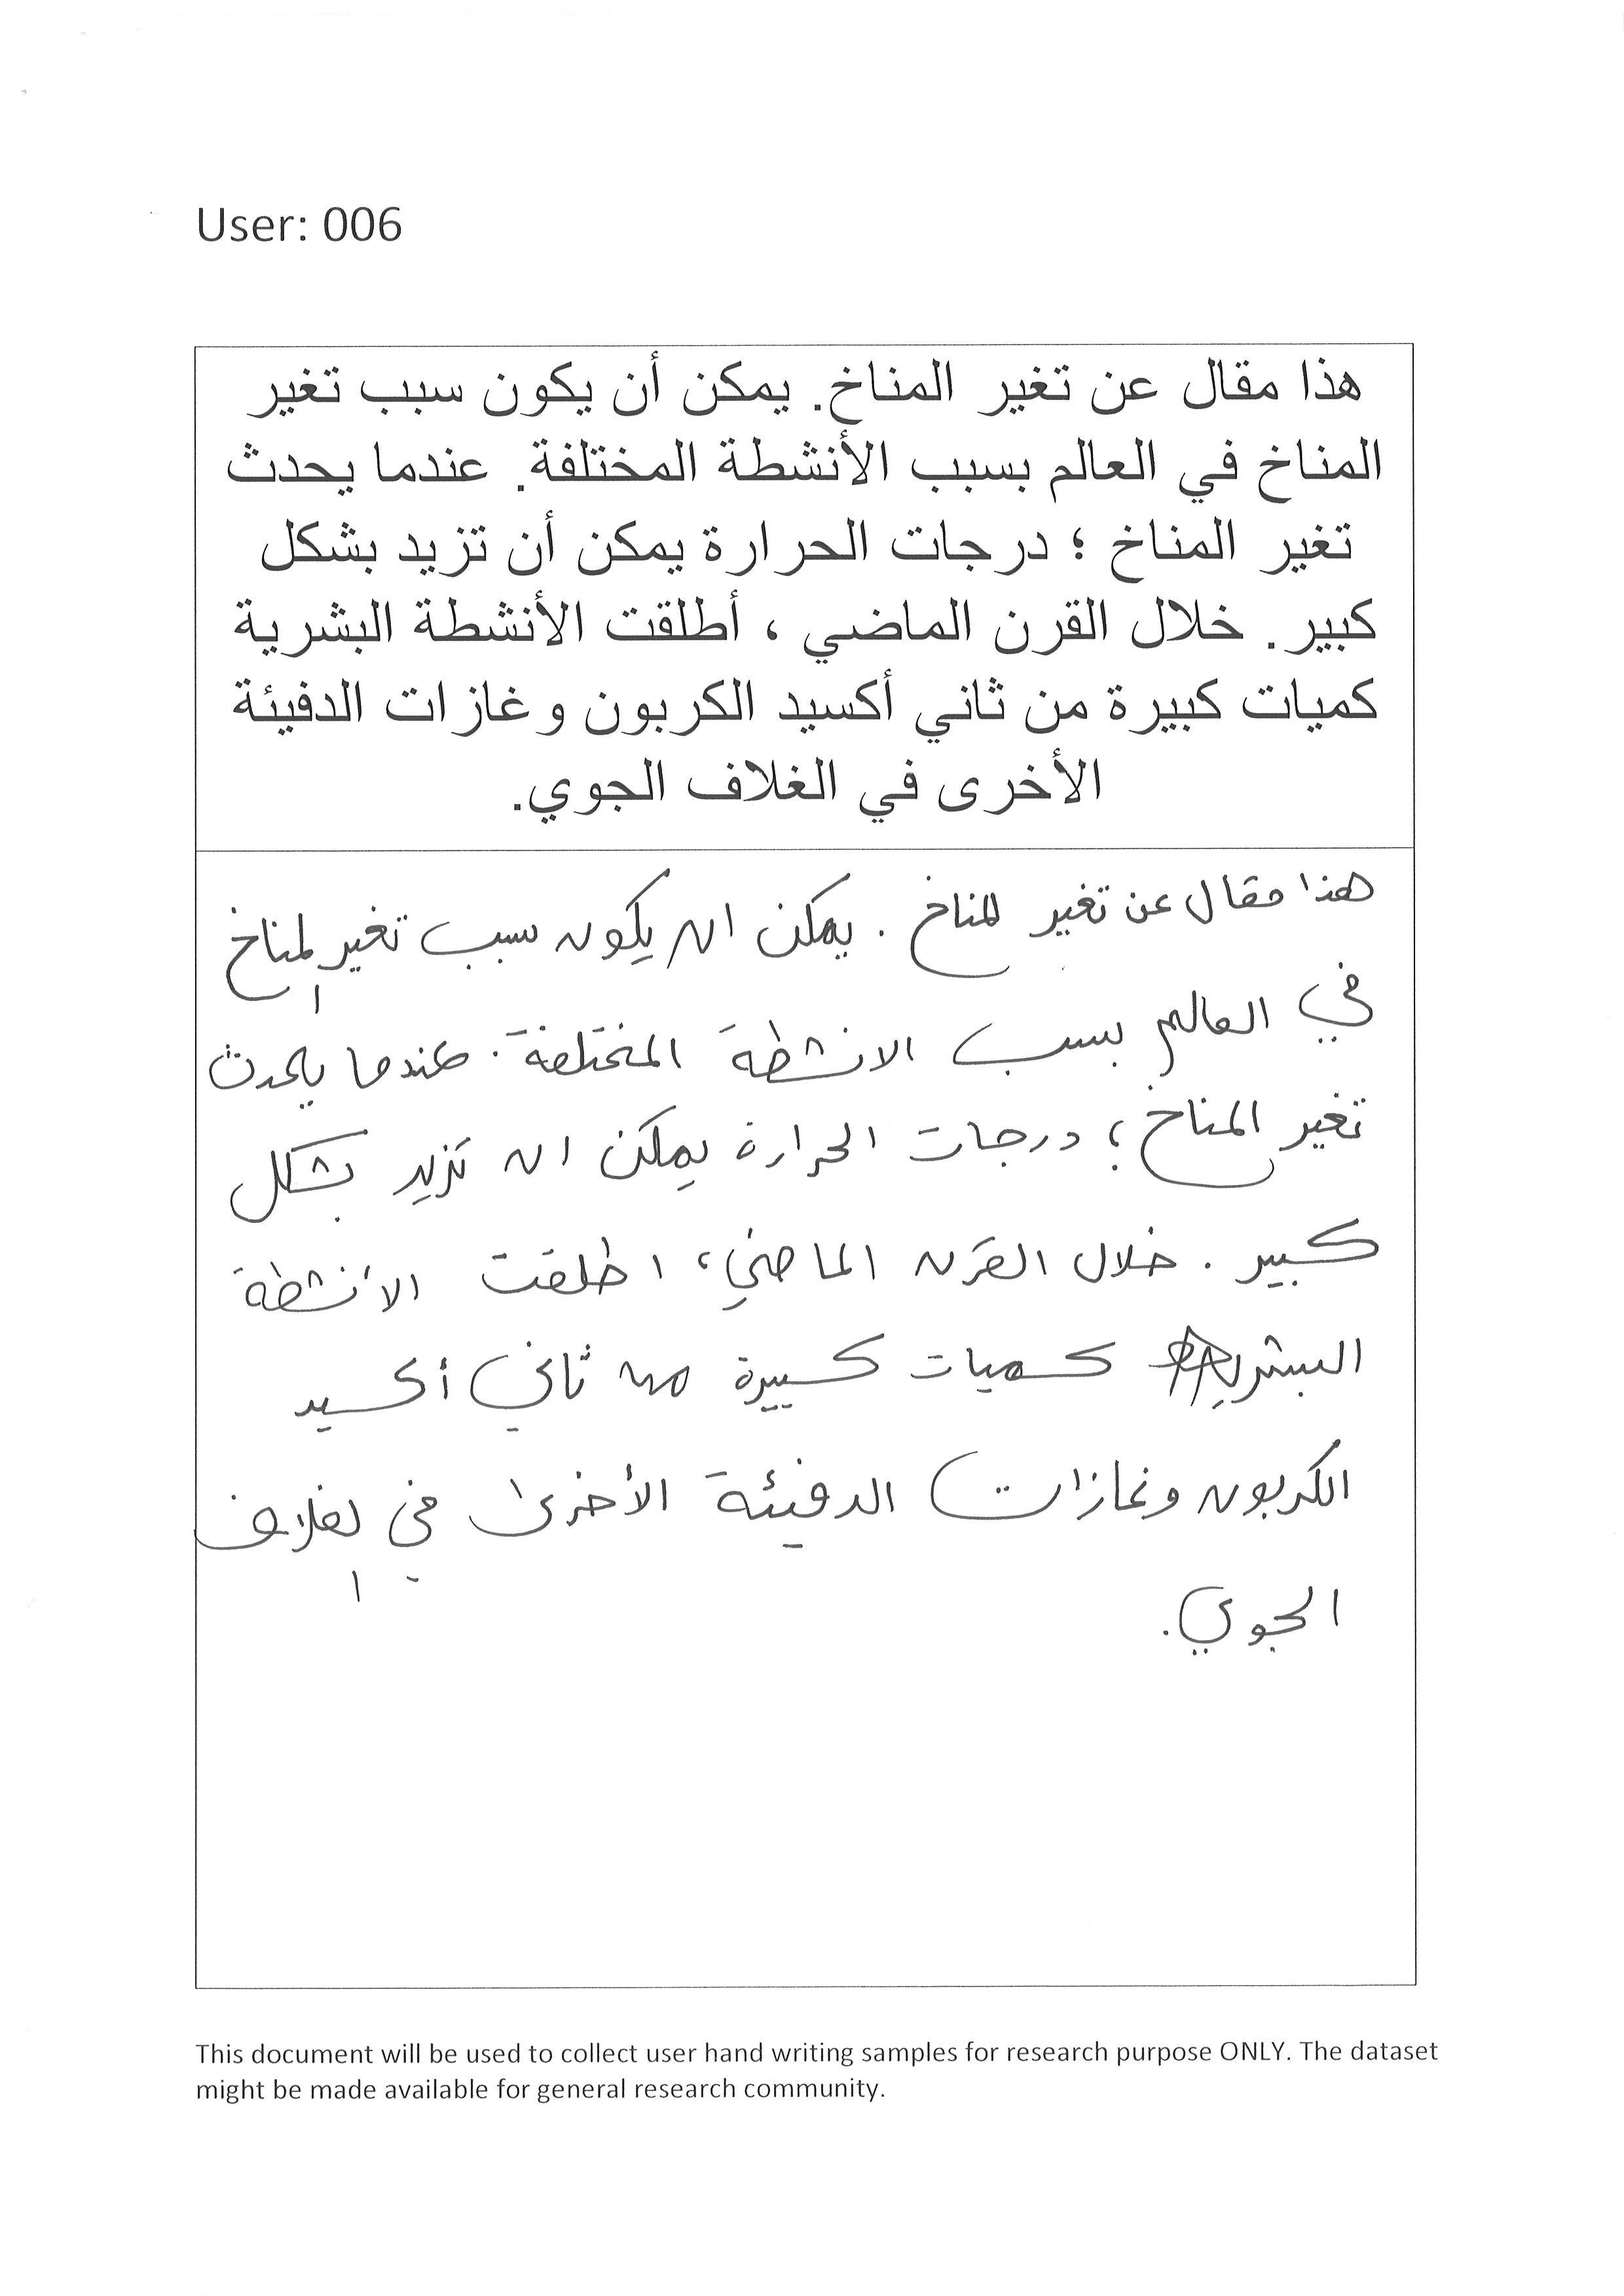 User: 006
هذا مقال عن تغير المناخ. يمكن أن يكون سبب تغير
المناخ في العالم بسبب الأنشطة المختلفة. عندما يحدث
تغير المناخ ؛ درجات الحرارة يمكن أن تزيد بشكل
كبير. خلال القرن الماضي ، أطلقت الأنشطة البشرية
كميات كبيرة من ثاني أكسيد الكربون وغازات الدفيئة
الأخرى في الغلاف الجوي.
هذا مقال عن تغير المناخ . يمكن ان يكون سبب تغير المناخ
في العالم بسبب الانشطة المختلفة . عندما يحدث
تغير المناخ ؛ درجات الحرارة يمكن ان تزيد بشكل
كبير . خلال القرن الماضي ، اطلقت الأنشطة
البشرية كميات كبيرة من ثاني أكسيد
الكربون وغازات الدفيئة الأخرى في الغلاف
الجوي .
This document will be used to collect user hand writing samples for research purpose ONLY. The dataset
might be made available for general research community.